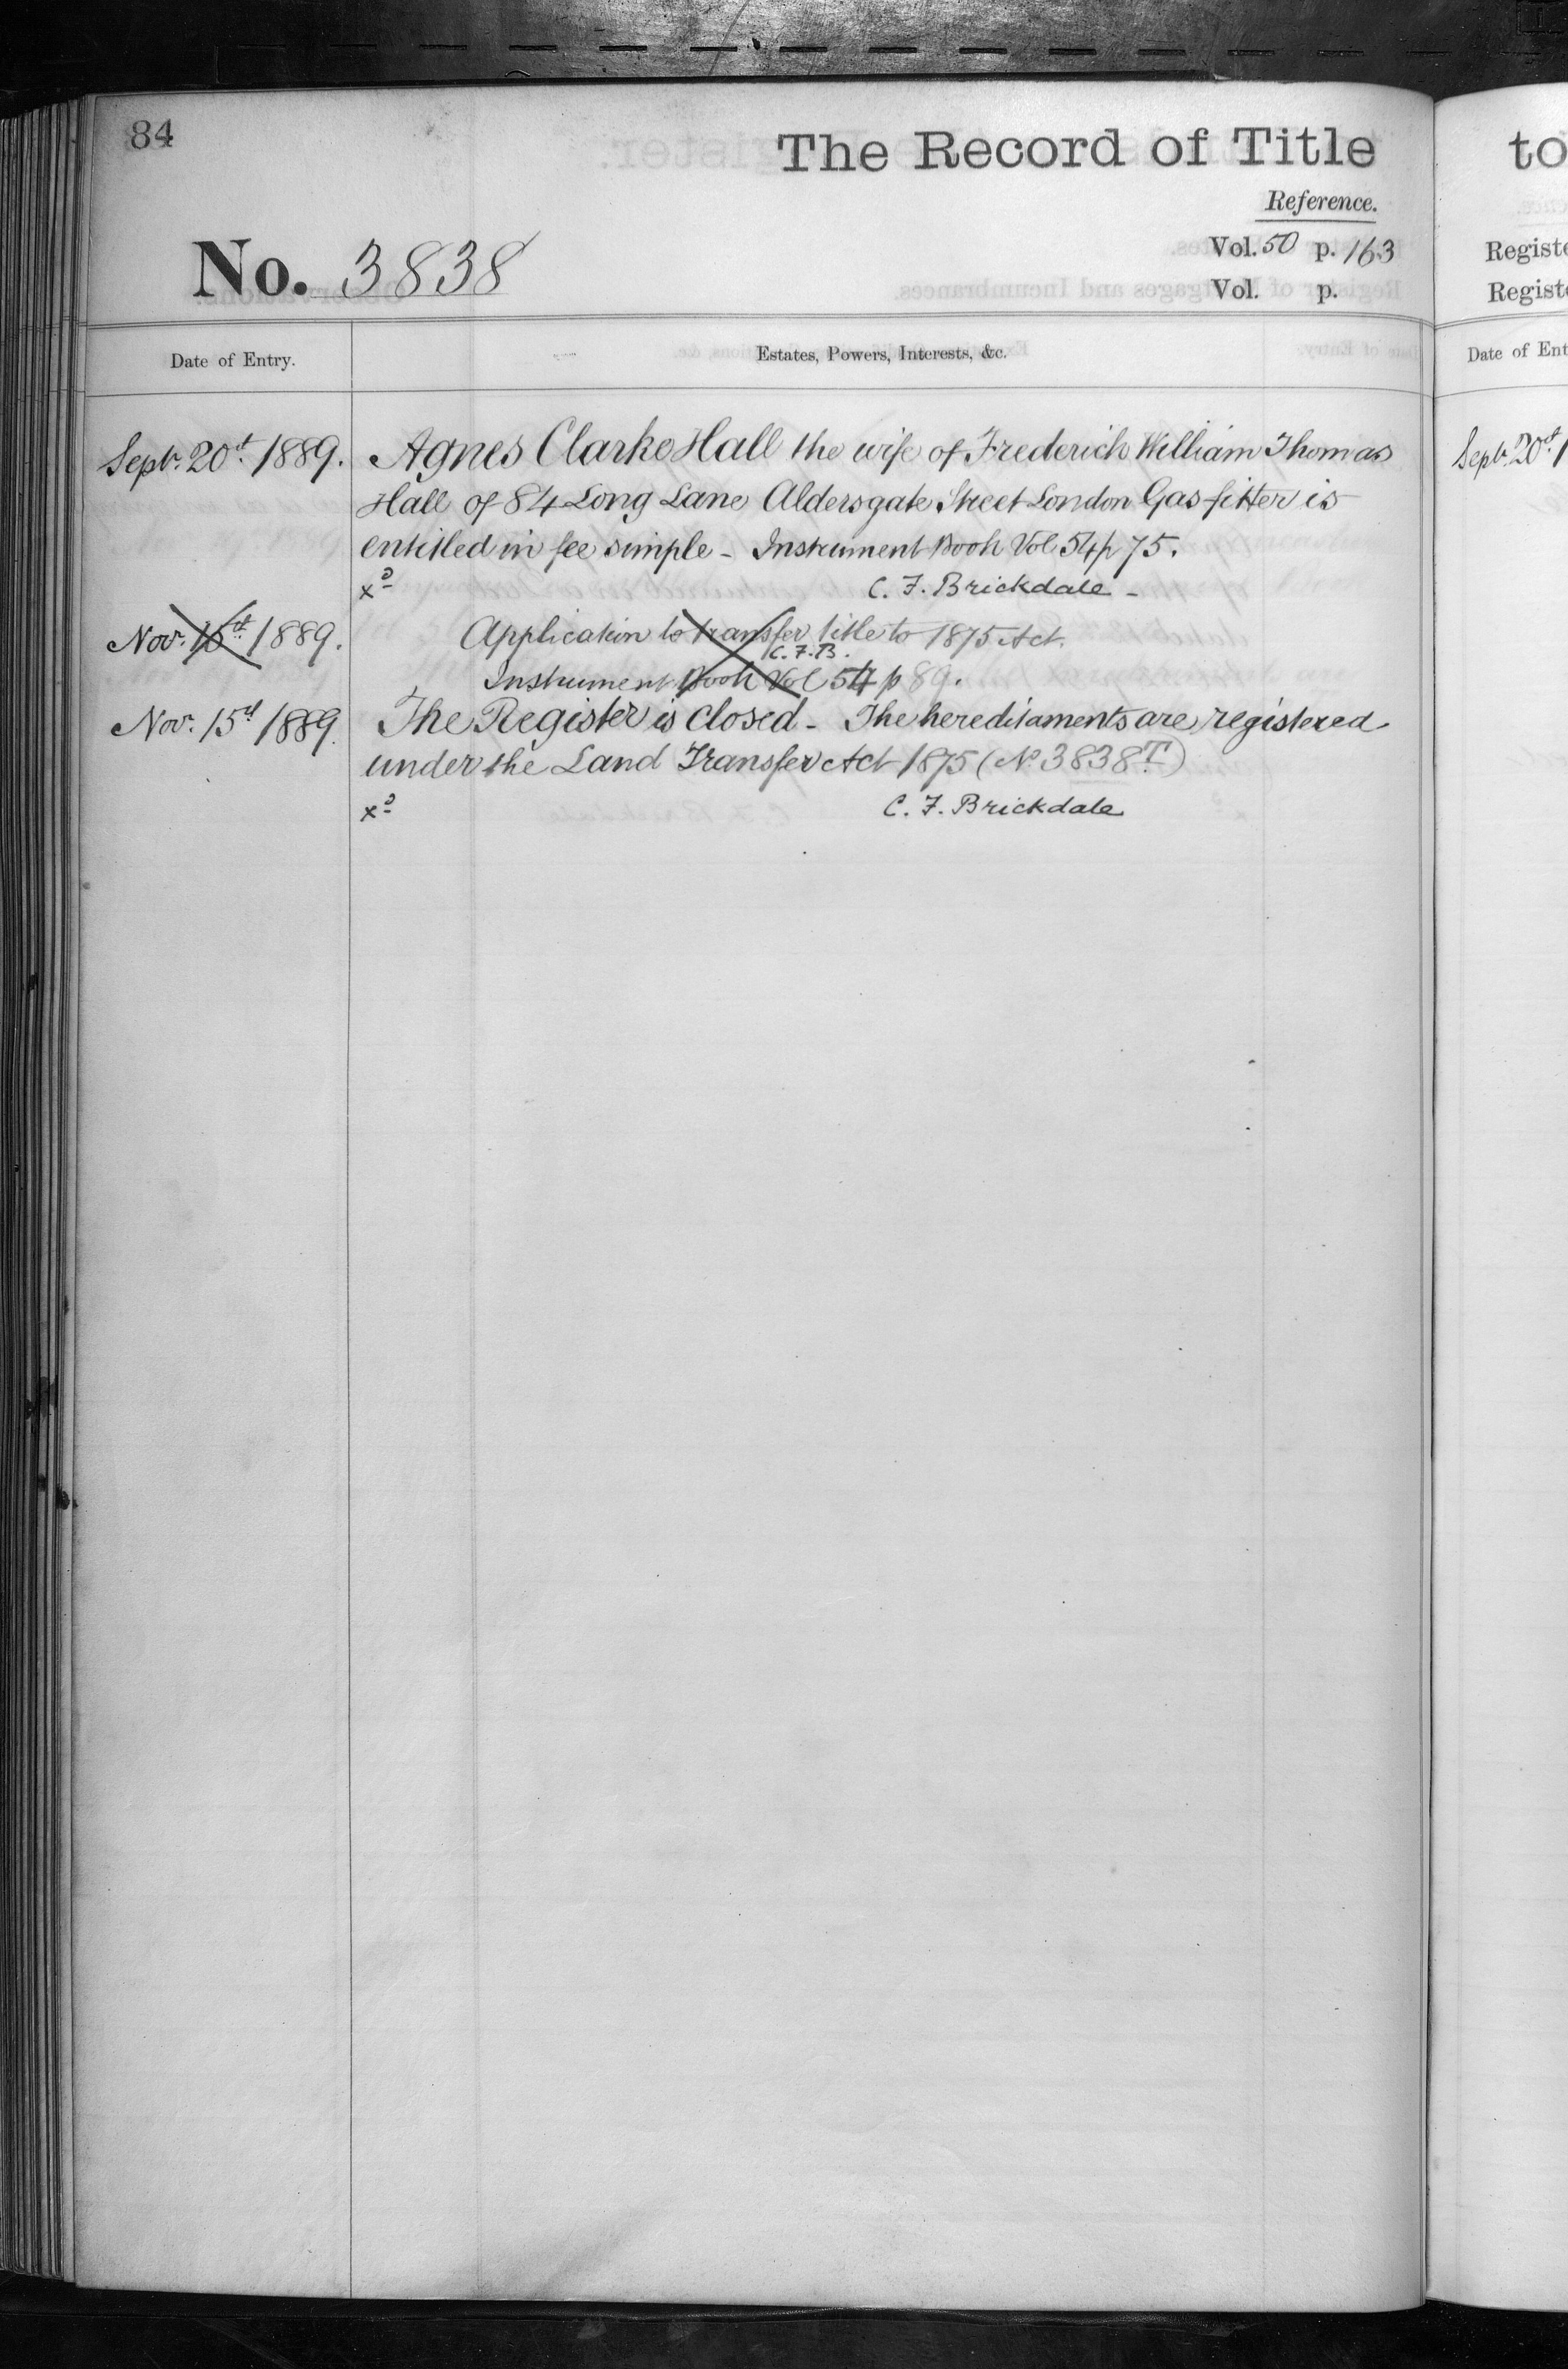 84
The Record of Title
Reference.
No. 3838
Vol. 50 p. 163
Vol. p.
Date of Entry.
Estates, Powers, Interests, &c.
Septr. 20th 1889.
Agnes Clarke Hall the wife of Frederick William Thomas
Hall of 84 Long Lane Aldersgate Street London Gas fitter is
entitled in fee simple - Instrument Book Vol 54 p 75.
C. F. Brickdale -
Nov. 15th 1889.
Application to transfer title to 1875 Act.
C. F. B.
Instrument Book Vol 54 p 89.
Nov. 15th 1889.
The Register is closed - The hereditaments are registered
under the Land Transfer Act 1875 (No. 3838T)
C. F. Brickdale
to
Registe
Registe
Date of Ent
Septr. 20th 1